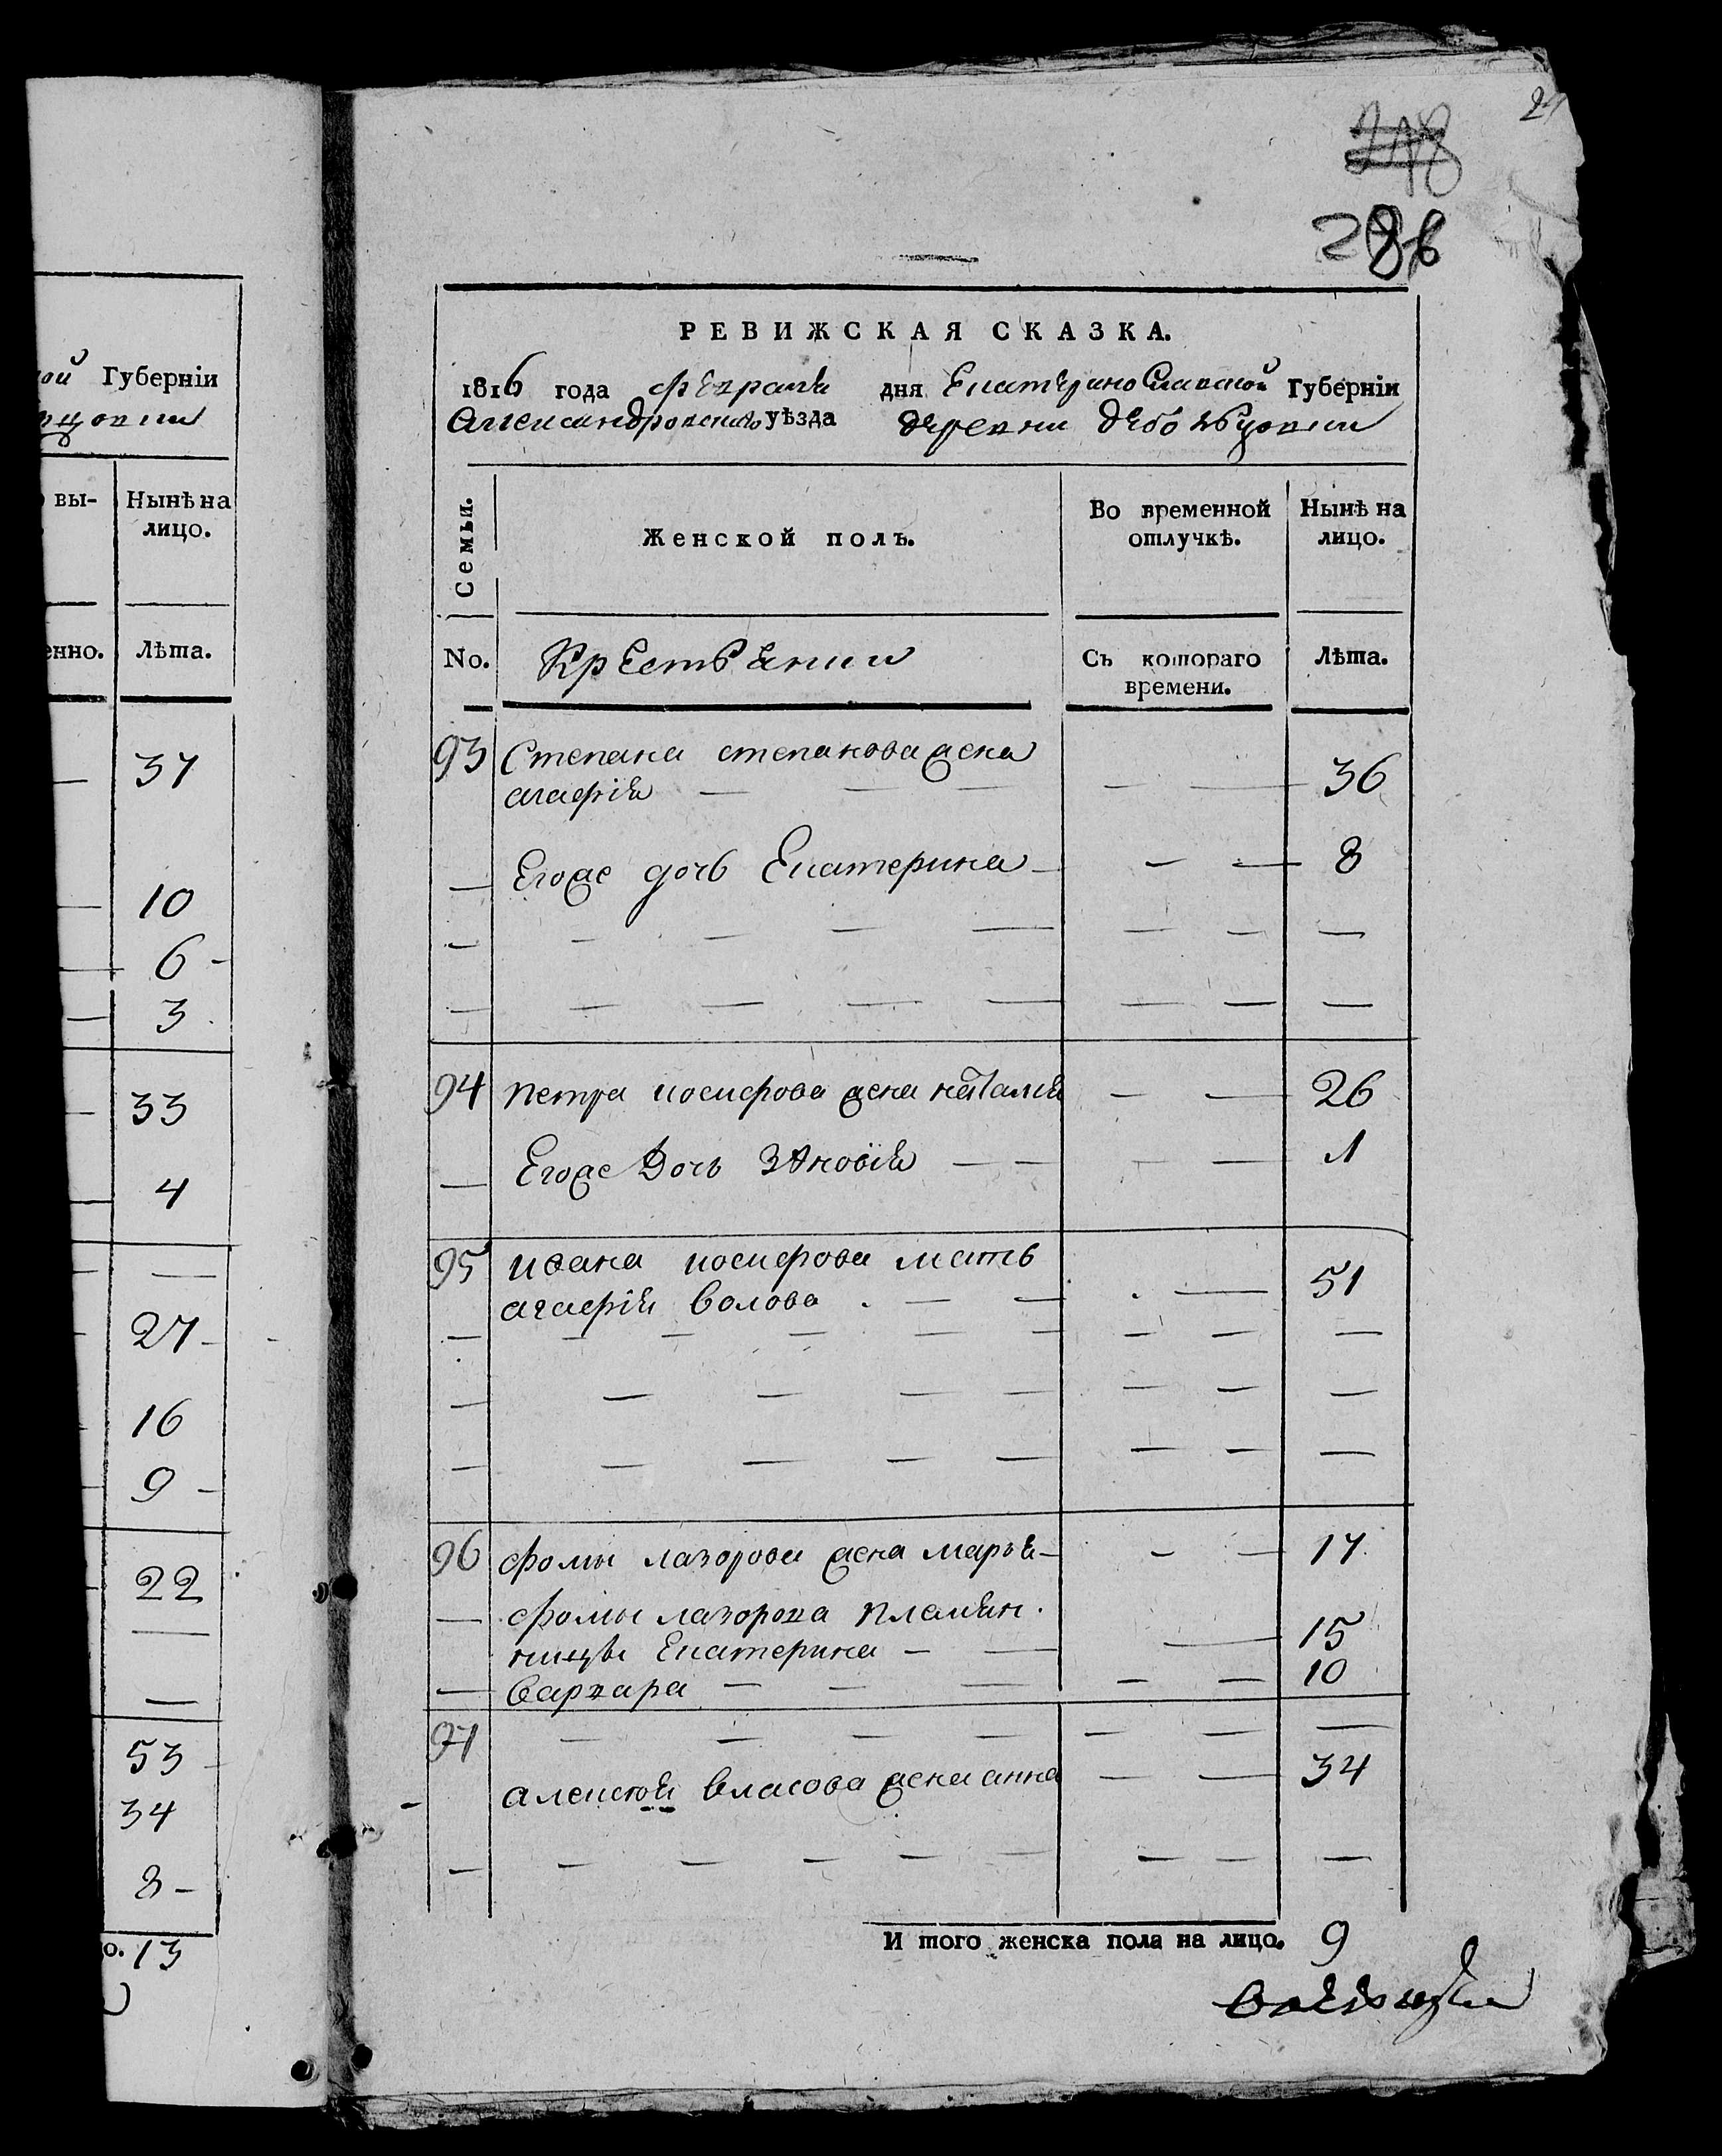 ой Губерніи
вы-
Нынѣ на
лицо.
енно.
Лѣта.
37
10
6
3
33
4
27
16
9
22
53
34
8
о. 13
248
286
РЕВИЖСКАЯ СКАЗКА.
1816 года февраля дня Екатеринославской Губерніи
Александровскаго уѣзда деревни
Семьи.
Женской полъ.
Во временной
отлучкѣ.
Нынѣ на
лицо.
No.
Крестьянки
Съ котораго
времени.
Лѣта.
93 Степана степанова жена
агафія 36
Егоже дочь Екатерина 8
94 петра иосифова жена наталия 26
Егоже Дочь Зѣновія 1
95 ивана иосифова мать
агафія власова 51
96 фомы лазорова жена марья 17
фомы лазорова племян
ницы Екатерина 15
варвара 10
97
алексея власова жена анна 34
И того женска пола на лицо. 9